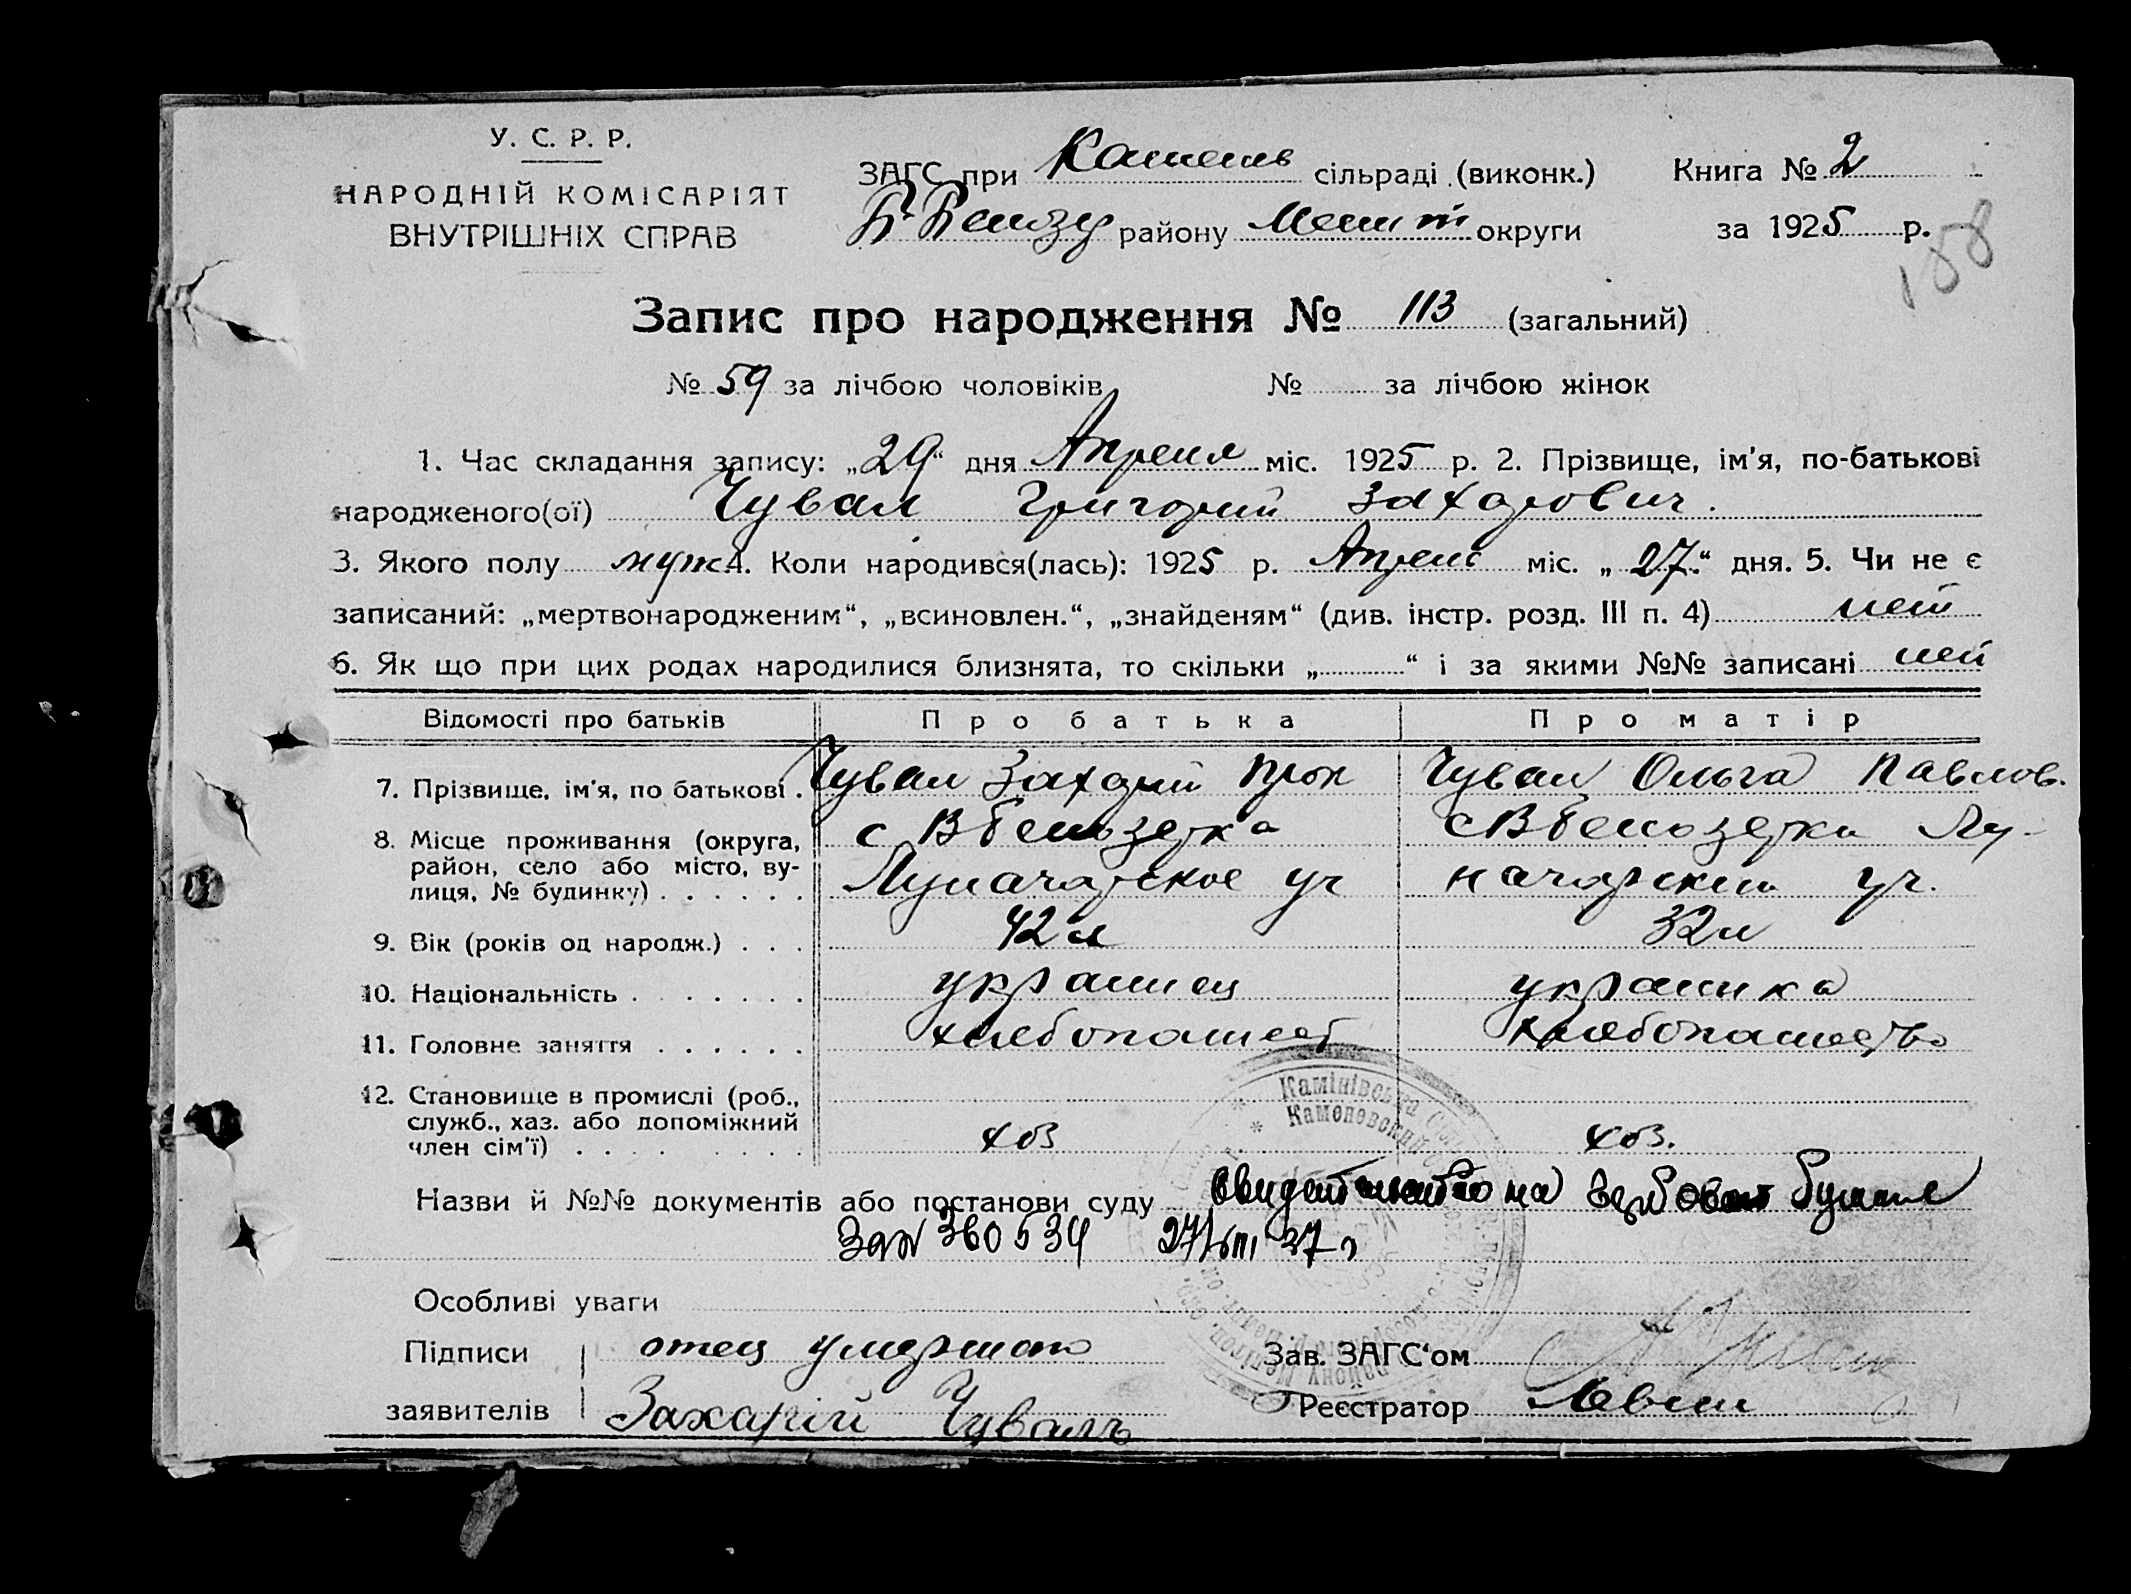 У. С. Р. Р.
НАРОДНІЙ КОМІСАРІЯТ
ВНУТРІШНІХ СПРАВ
ЗАГС при Каменів сільраді (виконк.)
района Меліт округи
Книга № 2
за 1925 р.
158
Запис про народження № 113 (загальний)
№ 59 за лічбою чоловіків № за лічбою жінок
1. Час складання запису: „29“ дня Апреля міс. 1925 р. 2. Прізвище, ім'я, по-батькові
народженого(ої) Чувал Григорий Захарович.
3. Якого полу муж 4. Коли народився(лась): 1925 р. Апрель міс. „27“ дня. 5. Чи не є
записаний: „мертвонародженим“, „всиновлен.“, „знайденям“ (див. інстр. розд. III п. 4) нет
6. Як що при цих родах народилися близнята, то скільки „ “ і за якими №№ записані нет
Відомості про батьків Про батька Про матір
7. Прізвище, ім'я, по батькові . Чувал Захарий Прок Чувал Ольга Павлов.
8. Місце проживання (округа, район, село або місто, вулиця, № будинку) с В Белозерка Луначарское уч с В Белозерка Луначарский уч.
9. Вік (років од народж.) . . . 42 л 32 л
10. Національність . . . . . . . украинец украинка
11. Головне заняття . . . . . . хлебопашест хлебопашество
12. Становище в промислі (роб., служб., хаз. або допоміжний член сім'ї) хоз хоз.
Назви й №№ документів або постанови суду свидетельство на гербовой бумаге
Зан 360534 27/VIII 37 г
Особливі уваги
Підписи заявителів отец
Захарій Чувалъ
Зав. ЗАГС'ом
Реєстратор Левин
Камінівська
Каменовский